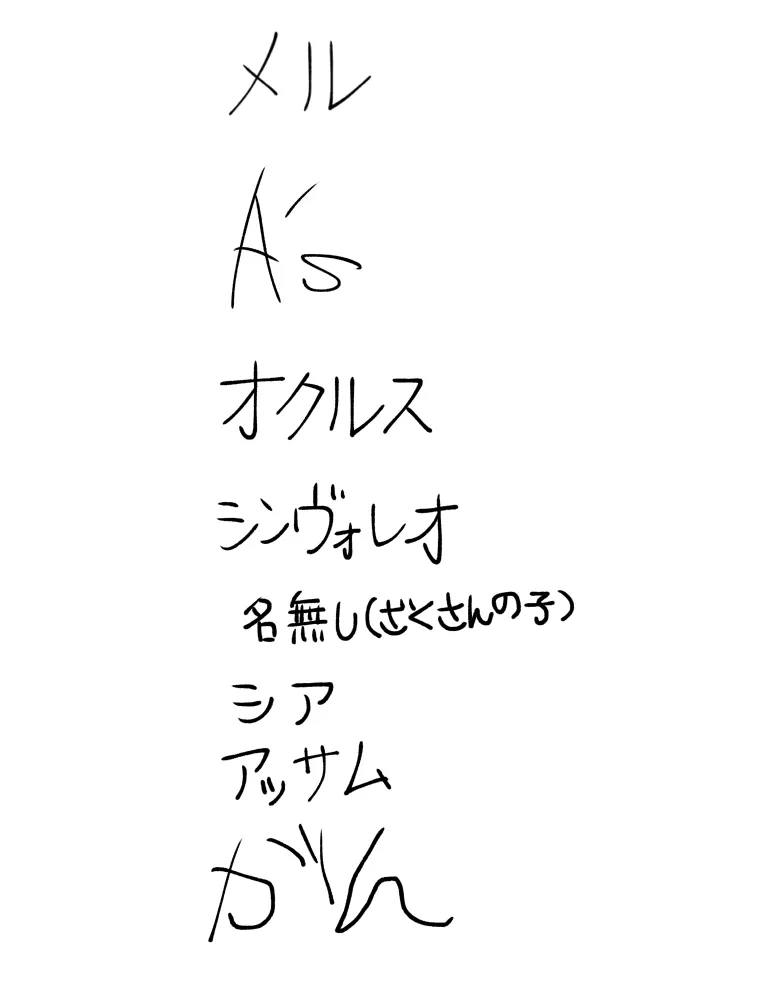 メル
A's
オクルス
シンヴォレオ
名無し(ざくさんの子)
シア
アッサム
がん